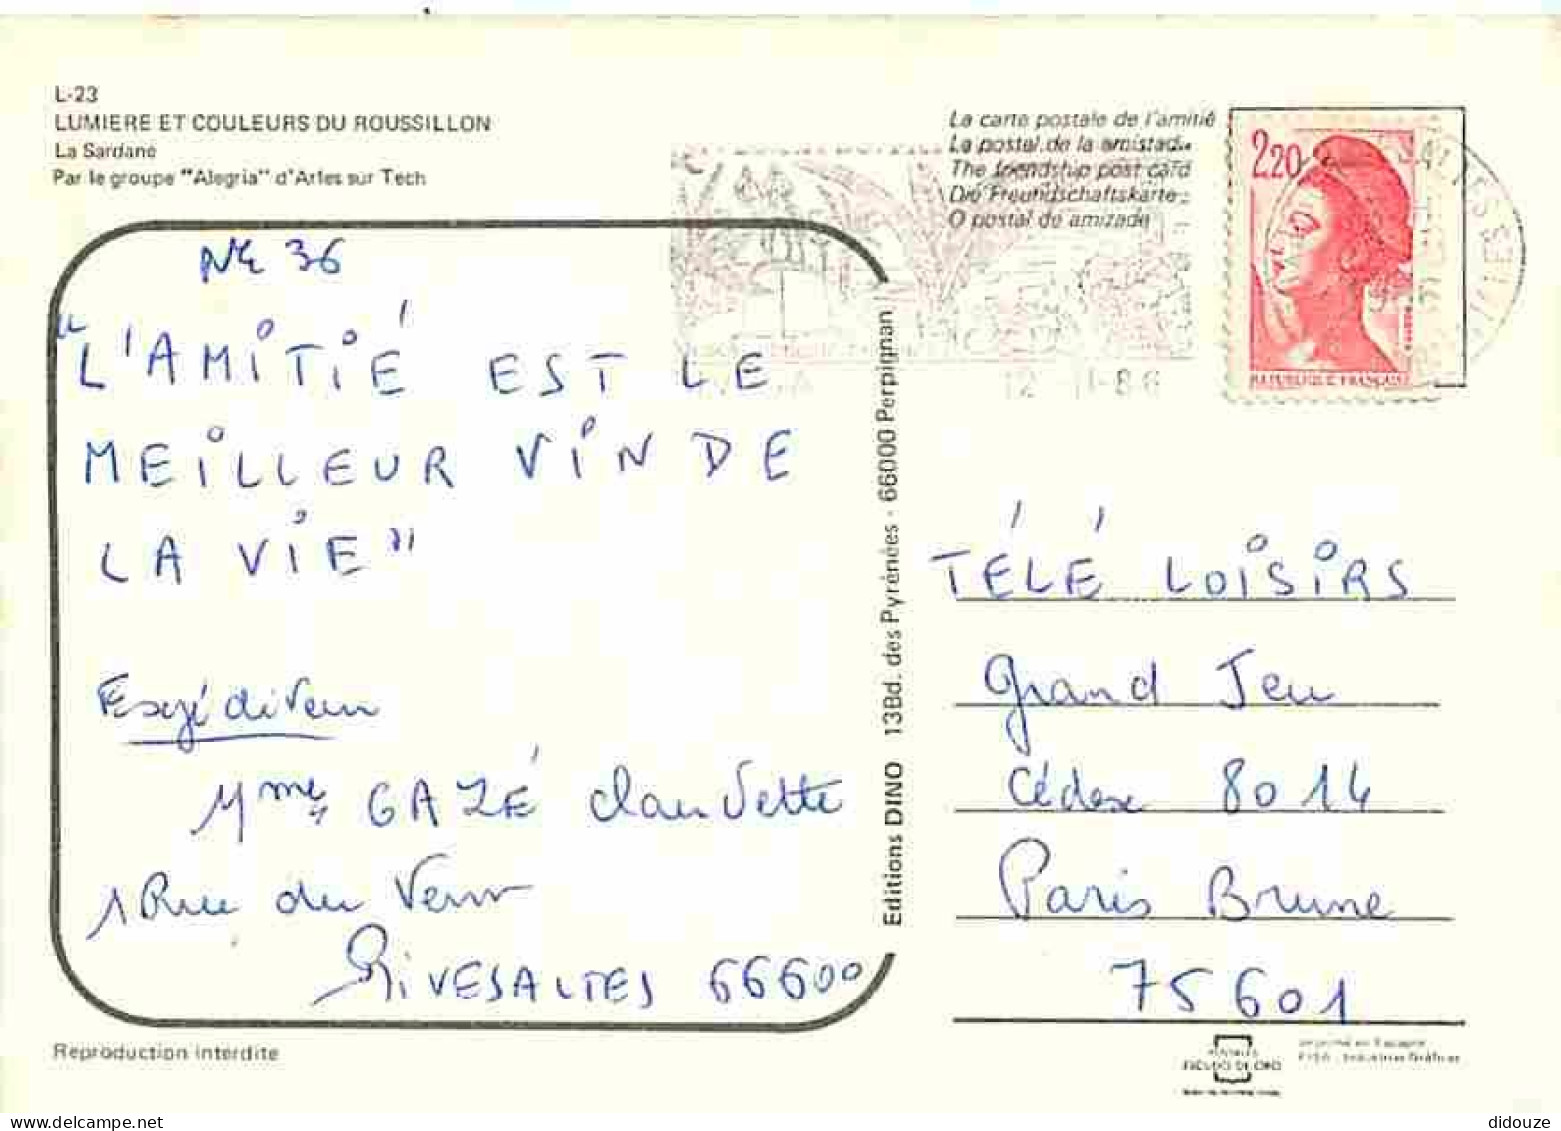 L-23
LUMIERE ET COULEURS DU ROUSSILLON
La Sardane
Par le groupe "Alegria" d'Arles sur Tech
La carte postale de l'amitié
La postal de la amistad
The friendship post card
Die Freundschaftskarte
O postal de amizade
2,20
REPUBLIQUE FRANÇAISE
12-11-86
N° 36
"L'AMITIÉ EST LE
MEILLEUR VIN DE
LA VIE"
Expéditeur
Mme GAZÉ Claudette
1 Rue du
RIVESALTES 66600
Editions DINO 13Bd. des Pyrénées - 66000 Perpignan
TÉLÉ LOISIRS
Grand Jeu
Cédex 8014
Paris Brune
75601
Reproduction interdite
ESCUDO DE ORO
didouze